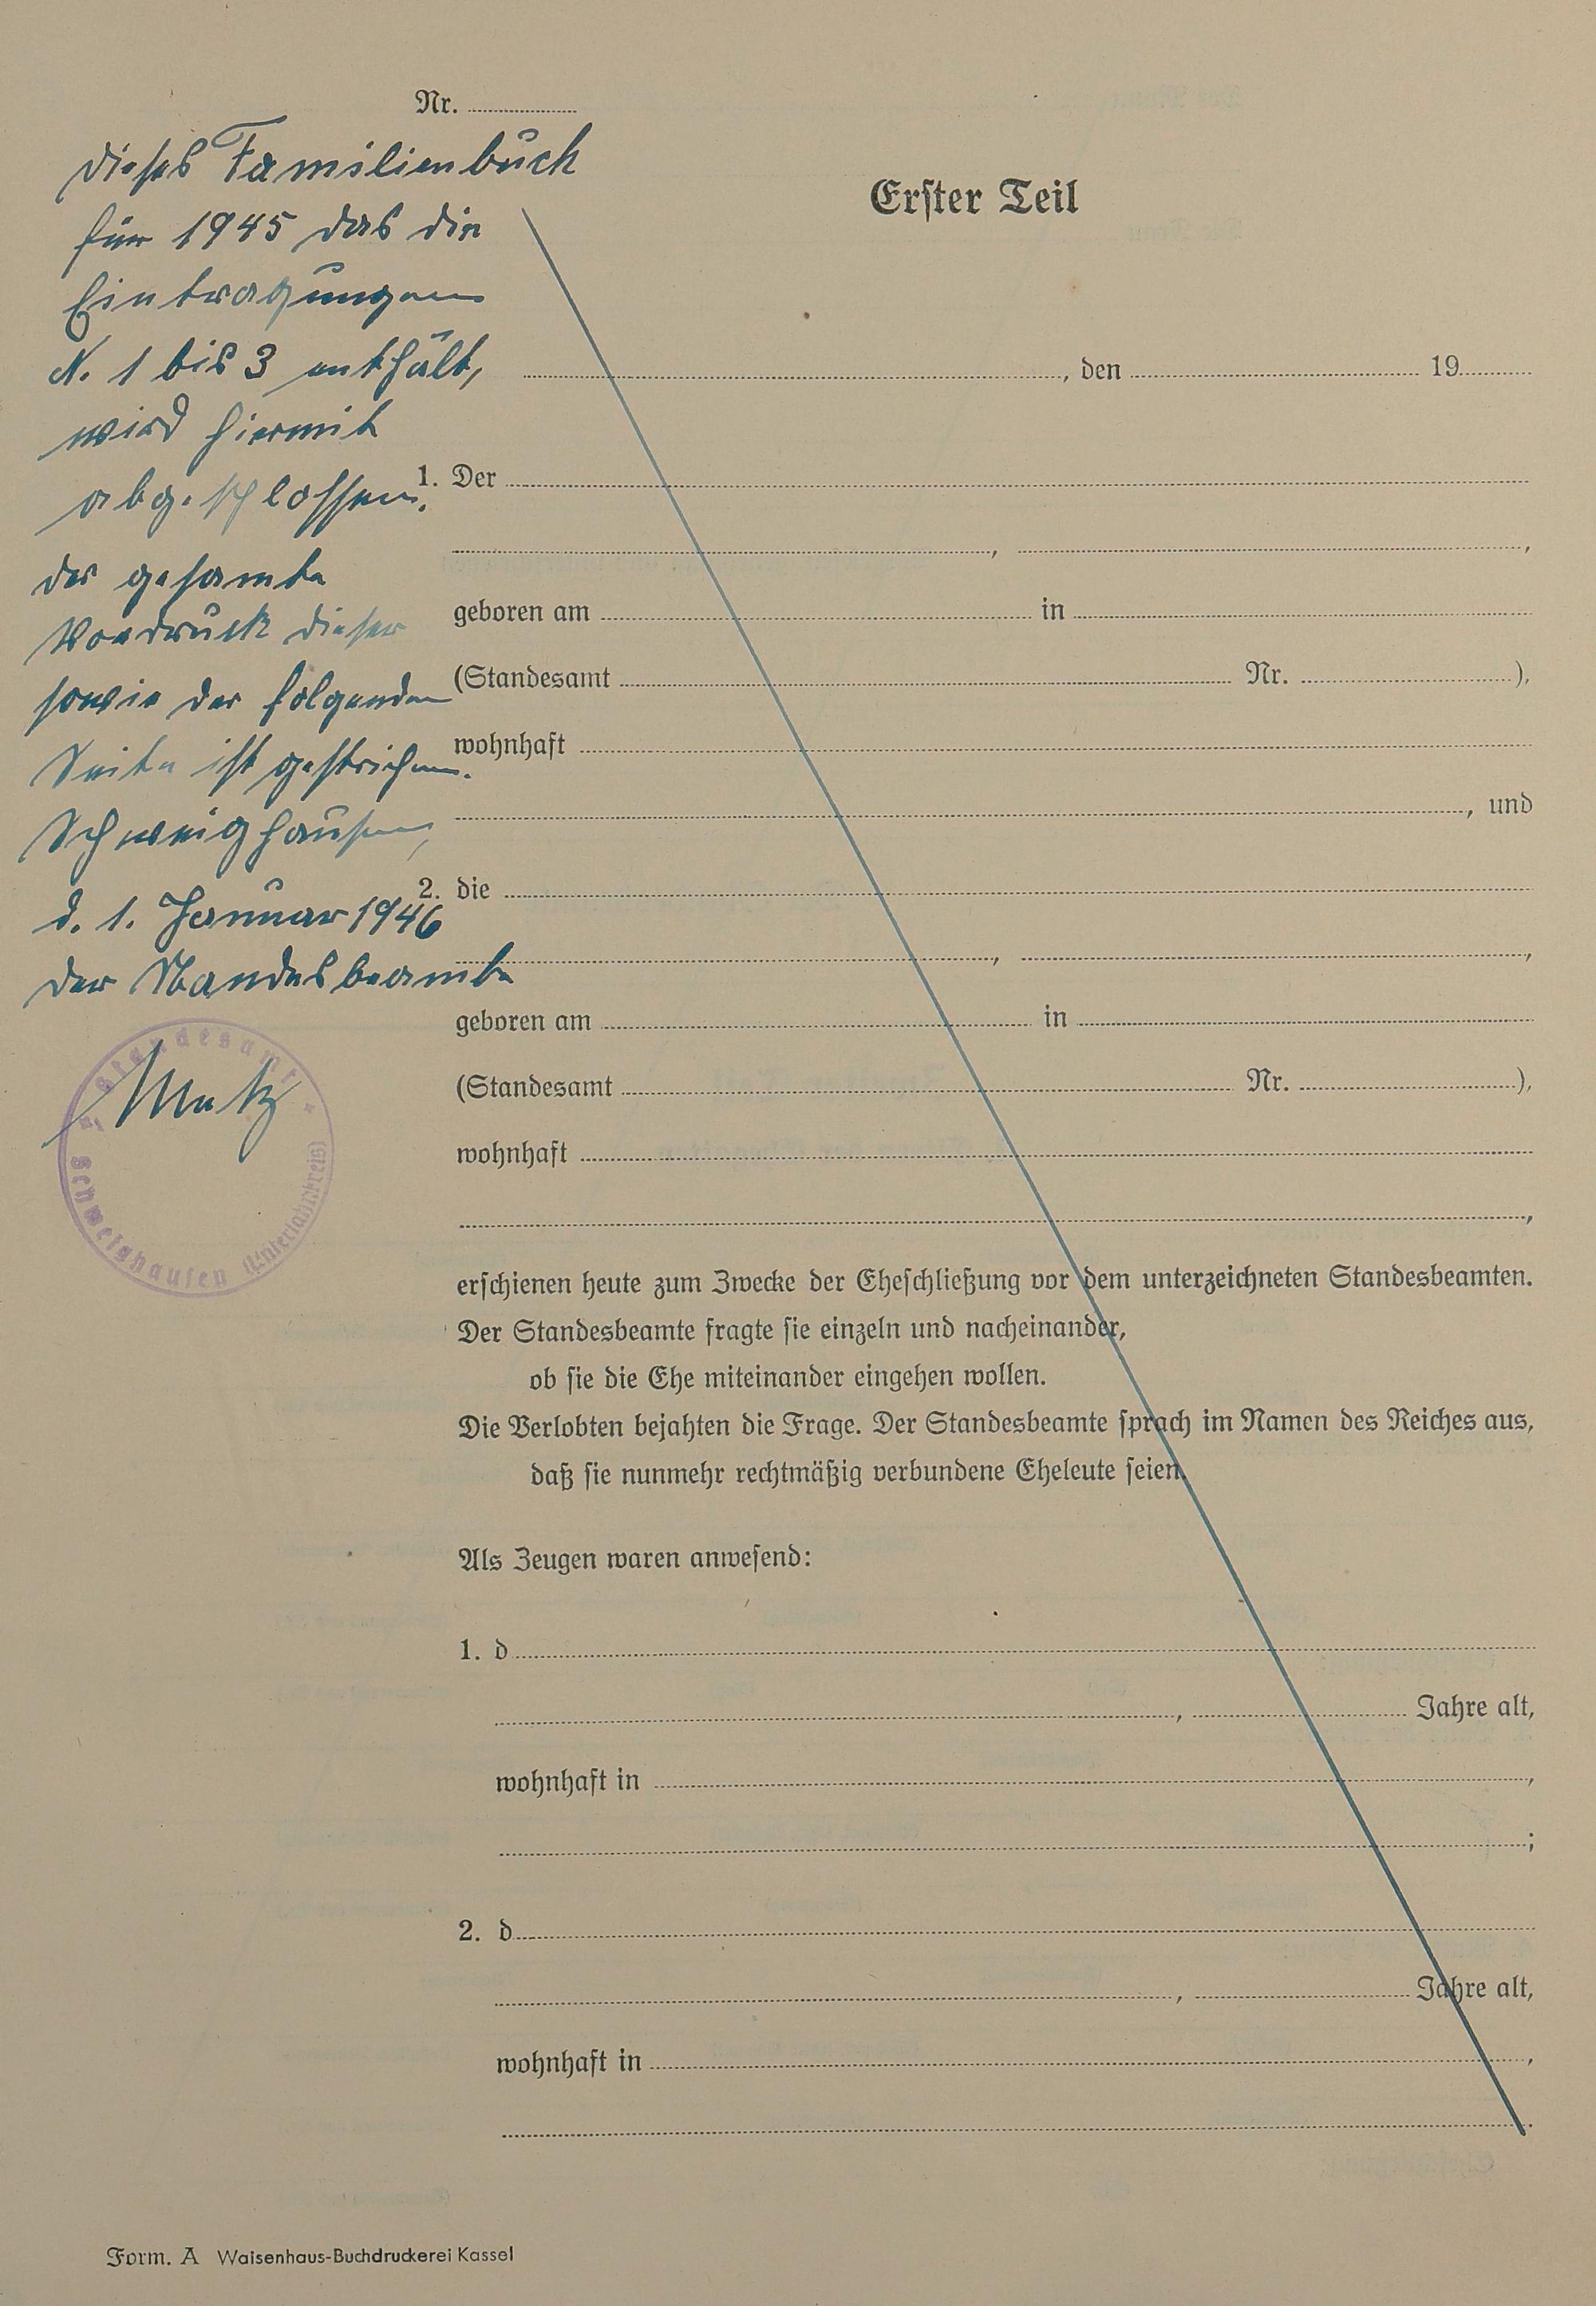 Nr.
Dieses Familienbuch
für 1945 das die
Eintragungen
N. 1 bis 3 enthält,
wird hiermit
abgeschlossen.
Der gesamte
Vordruck dieser
sowie der folgenden
Seite ist gestrichen.
Schweighausen,
d. 1. Januar 1946
Der Standesbeamte
Metz
Standesamt
Schweighausen (Unterlahnkreis)
Erster Teil
, den 19
1. Der
, ,
geboren am in
(Standesamt Nr. ),
wohnhaft
, und
2. die
, ,
geboren am in
(Standesamt Nr. ),
wohnhaft
,
erschienen heute zum Zwecke der Eheschließung vor dem unterzeichneten Standesbeamten.
Der Standesbeamte fragte sie einzeln und nacheinander,
ob sie die Ehe miteinander eingehen wollen.
Die Verlobten bejahten die Frage. Der Standesbeamte sprach im Namen des Reiches aus,
daß sie nunmehr rechtmäßig verbundene Eheleute seien.
Als Zeugen waren anwesend:
1. d
, Jahre alt,
wohnhaft in ,
;
2. d
, Jahre alt,
wohnhaft in ,
.
Form. A Waisenhaus-Buchdruckerei Kassel